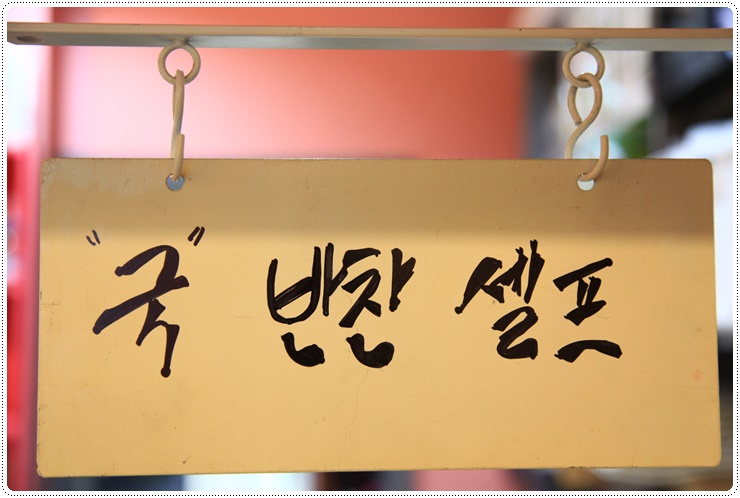 "국" 반찬 셀프